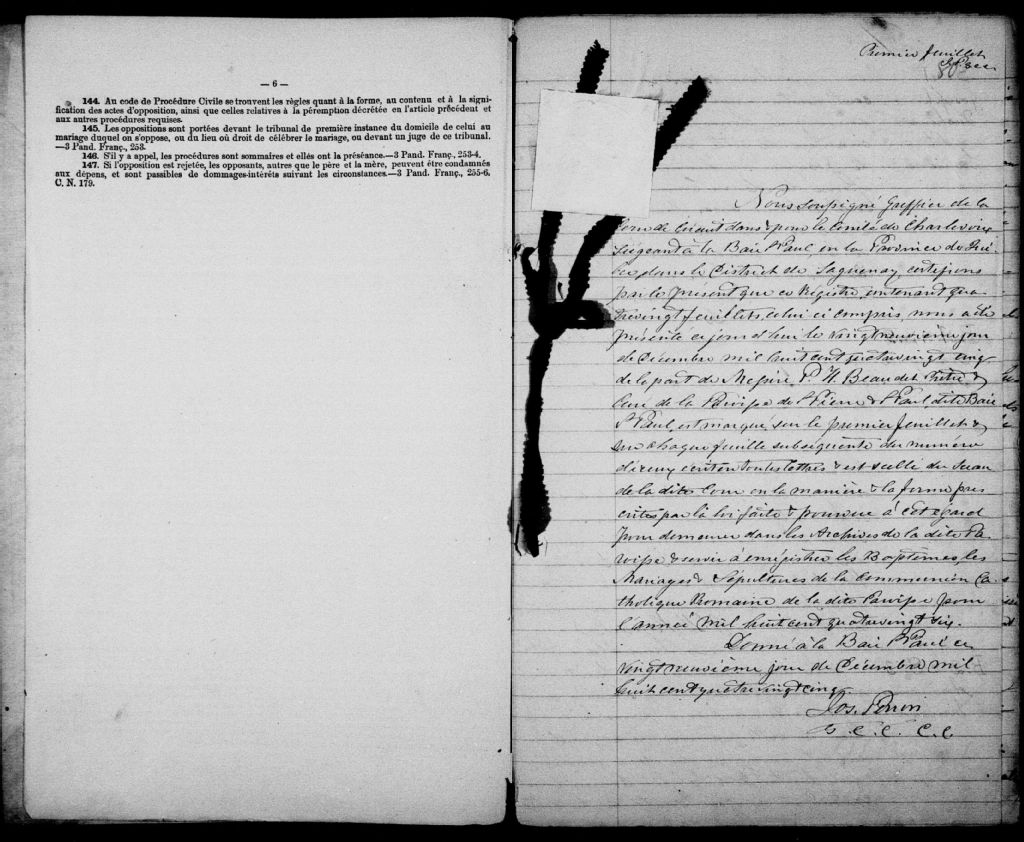 — 6 —
144. Au code de Procédure Civile se trouvent les règles quant à la forme, au contenu et à la signi-
fication des actes d'opposition, ainsi que celles relatives à la péremption décrétée en l'article précédent et
aux autres procédures requises.
145. Les oppositions sont portées devant le tribunal de première instance du domicile de celui au
mariage duquel on s'oppose, ou du lieu où droit de célébrer le mariage, ou devant un juge de ce tribunal.
—3 Pand. Franç., 253.
146. S'il y a appel, les procédures sont sommaires et elles ont la préséance.—3 Pand. Franç., 253-4.
147. Si l'opposition est rejetée, les opposants, autres que le père et la mère, peuvent être condamnés
aux dépens, et sont passibles de dommages-intérêts suivant les circonstances.—3 Pand. Franç., 255-6.
C. N. 179.
Premier feuillet
Nous soussigné Greffier de la
Cour de Circuit dans & pour le Comté de Charlevoix
Siégeant à la Baie St Paul, en la Province de Qué-
bec, dans le District de Saguenay, certifions
par le présent que ce Régistre, contenant qua-
trevingt feuillets, celui ci compris, nous a été
présenté ce jour d'hui le vingt neuvième jour
de Décembre mil huit cent quatrevingt cinq
de la part de Messire P. H. Beaudet Prêtre &
Curé de la Paroisse de St Pierre & St Paul, dite Baie
St Paul, est marqué sur le premier feuillet &
sur chaque feuille subséquente du numéro
d'iceux écrit en toutes lettres & est scellé du Sceau
de la dite Cour en la manière & la forme pres
crites par la loi faite & pourvue à cet égard
pour demeurer dans les Archives de la dite Pa-
roisse & servir à enrégistrer les Baptemes, les
Mariages & Sépultures de la Communion Ca-
tholique Romaine de la dite Paroisse pour
l'année mil huit cent quatrevingt six.
Donné à la Baie St Paul ce
vingt neuvième jour de Décembre mil
huit cent quatrevingt cinq
Jos. Perron
G. C. C. C. C.